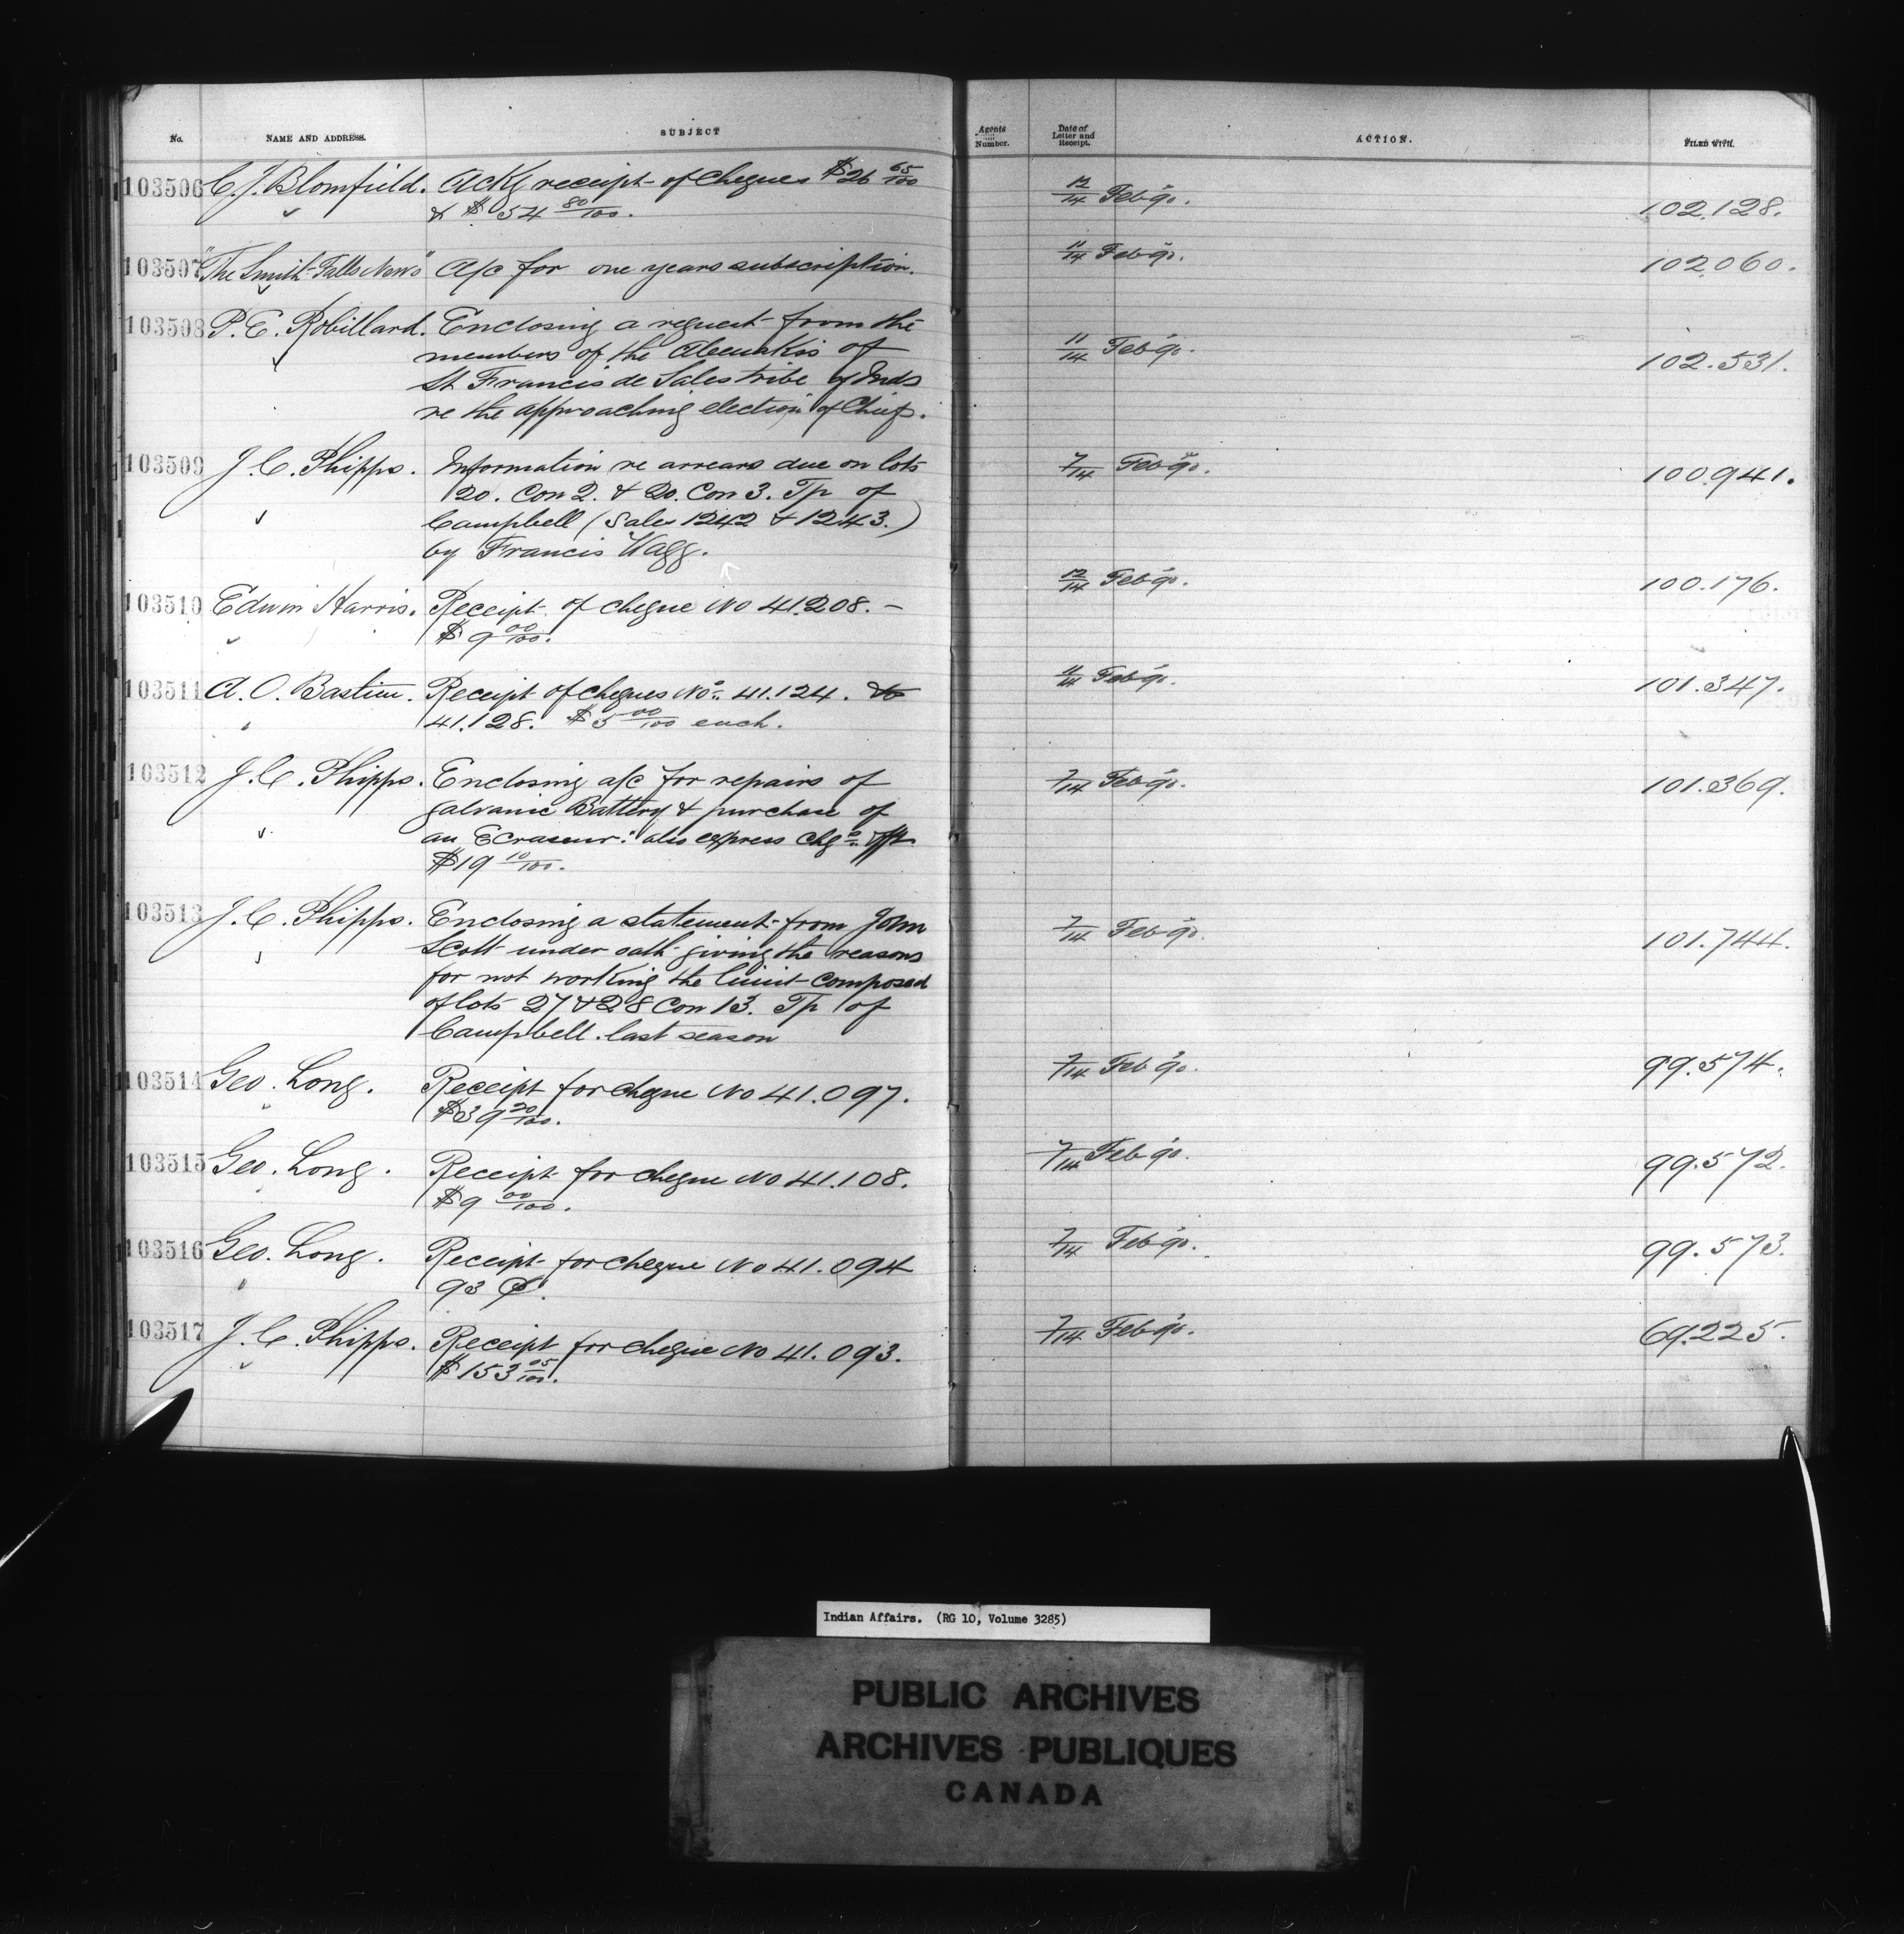 No. NAME AND ADDRESS. SUBJECT Agents Number. Date of Letter and Receipt. ACTION. FILED WITH.
103506 C. J. Blomfield. Ackg receipt of Cheques $26 65/100 12/14 Feb 90. 102.128.
& $54 80/100.
103507 "The Smith Falls News" A/c for one years subscription. 11/14 Feb 90. 102.060.
103508 P. E. Robillard. Enclosing a request from the 11/14 Feb 90. 102.531.
members of the Abenakis of
St Francis de Sales tribe of Inds
re the approaching election of Chief.
103509 J. C. Phipps. Information re arrears due on lots 7/14 Feb 90. 100.941.
20. Con 2. & 20. Con 3. Tp of
Campbell (Sales 1242 & 1243.)
by Francis Wagg.
103510 Edwin Harris. Receipt of cheque No 41.208. – 12/14 Feb 90. 100.176.
$9 00/100.
103511 A. O. Bastien. Receipt of cheques Nos. 41.124. to 11/14 Feb 90. 101.347.
41.128. $5 00/100 each.
103512 J. C. Phipps. Enclosing a/c for repairs of 7/14 Feb 90. 101.369.
galvanic Battery & purchase of
an Ecraseur: also express chgs
$19 10/100.
103513 J. C. Phipps. Enclosing a statement from John 7/14 Feb 90. 101.744.
Scott under oath giving the reasons
for not working the limit composed
of lots 27 & 28 Con 13. Tp of
Campbell. last season
103514 Geo. Long. Receipt for cheque No 41.097. 7/14 Feb 90. 99.574.
$39 20/100.
103515 Geo. Long. Receipt for cheque No 41.108. 7/14 Feb 90. 99.572.
$9 00/100.
103516 Geo. Long. Receipt for cheque No 41.094 7/14 Feb 90. 99.573.
93 ¢.
103517 J. C. Phipps. Receipt for cheque No 41.093. 7/14 Feb 90. 69.225.
$153 05/100.
Indian Affairs. (RG 10, Volume 3285)
PUBLIC ARCHIVES
ARCHIVES PUBLIQUES
CANADA